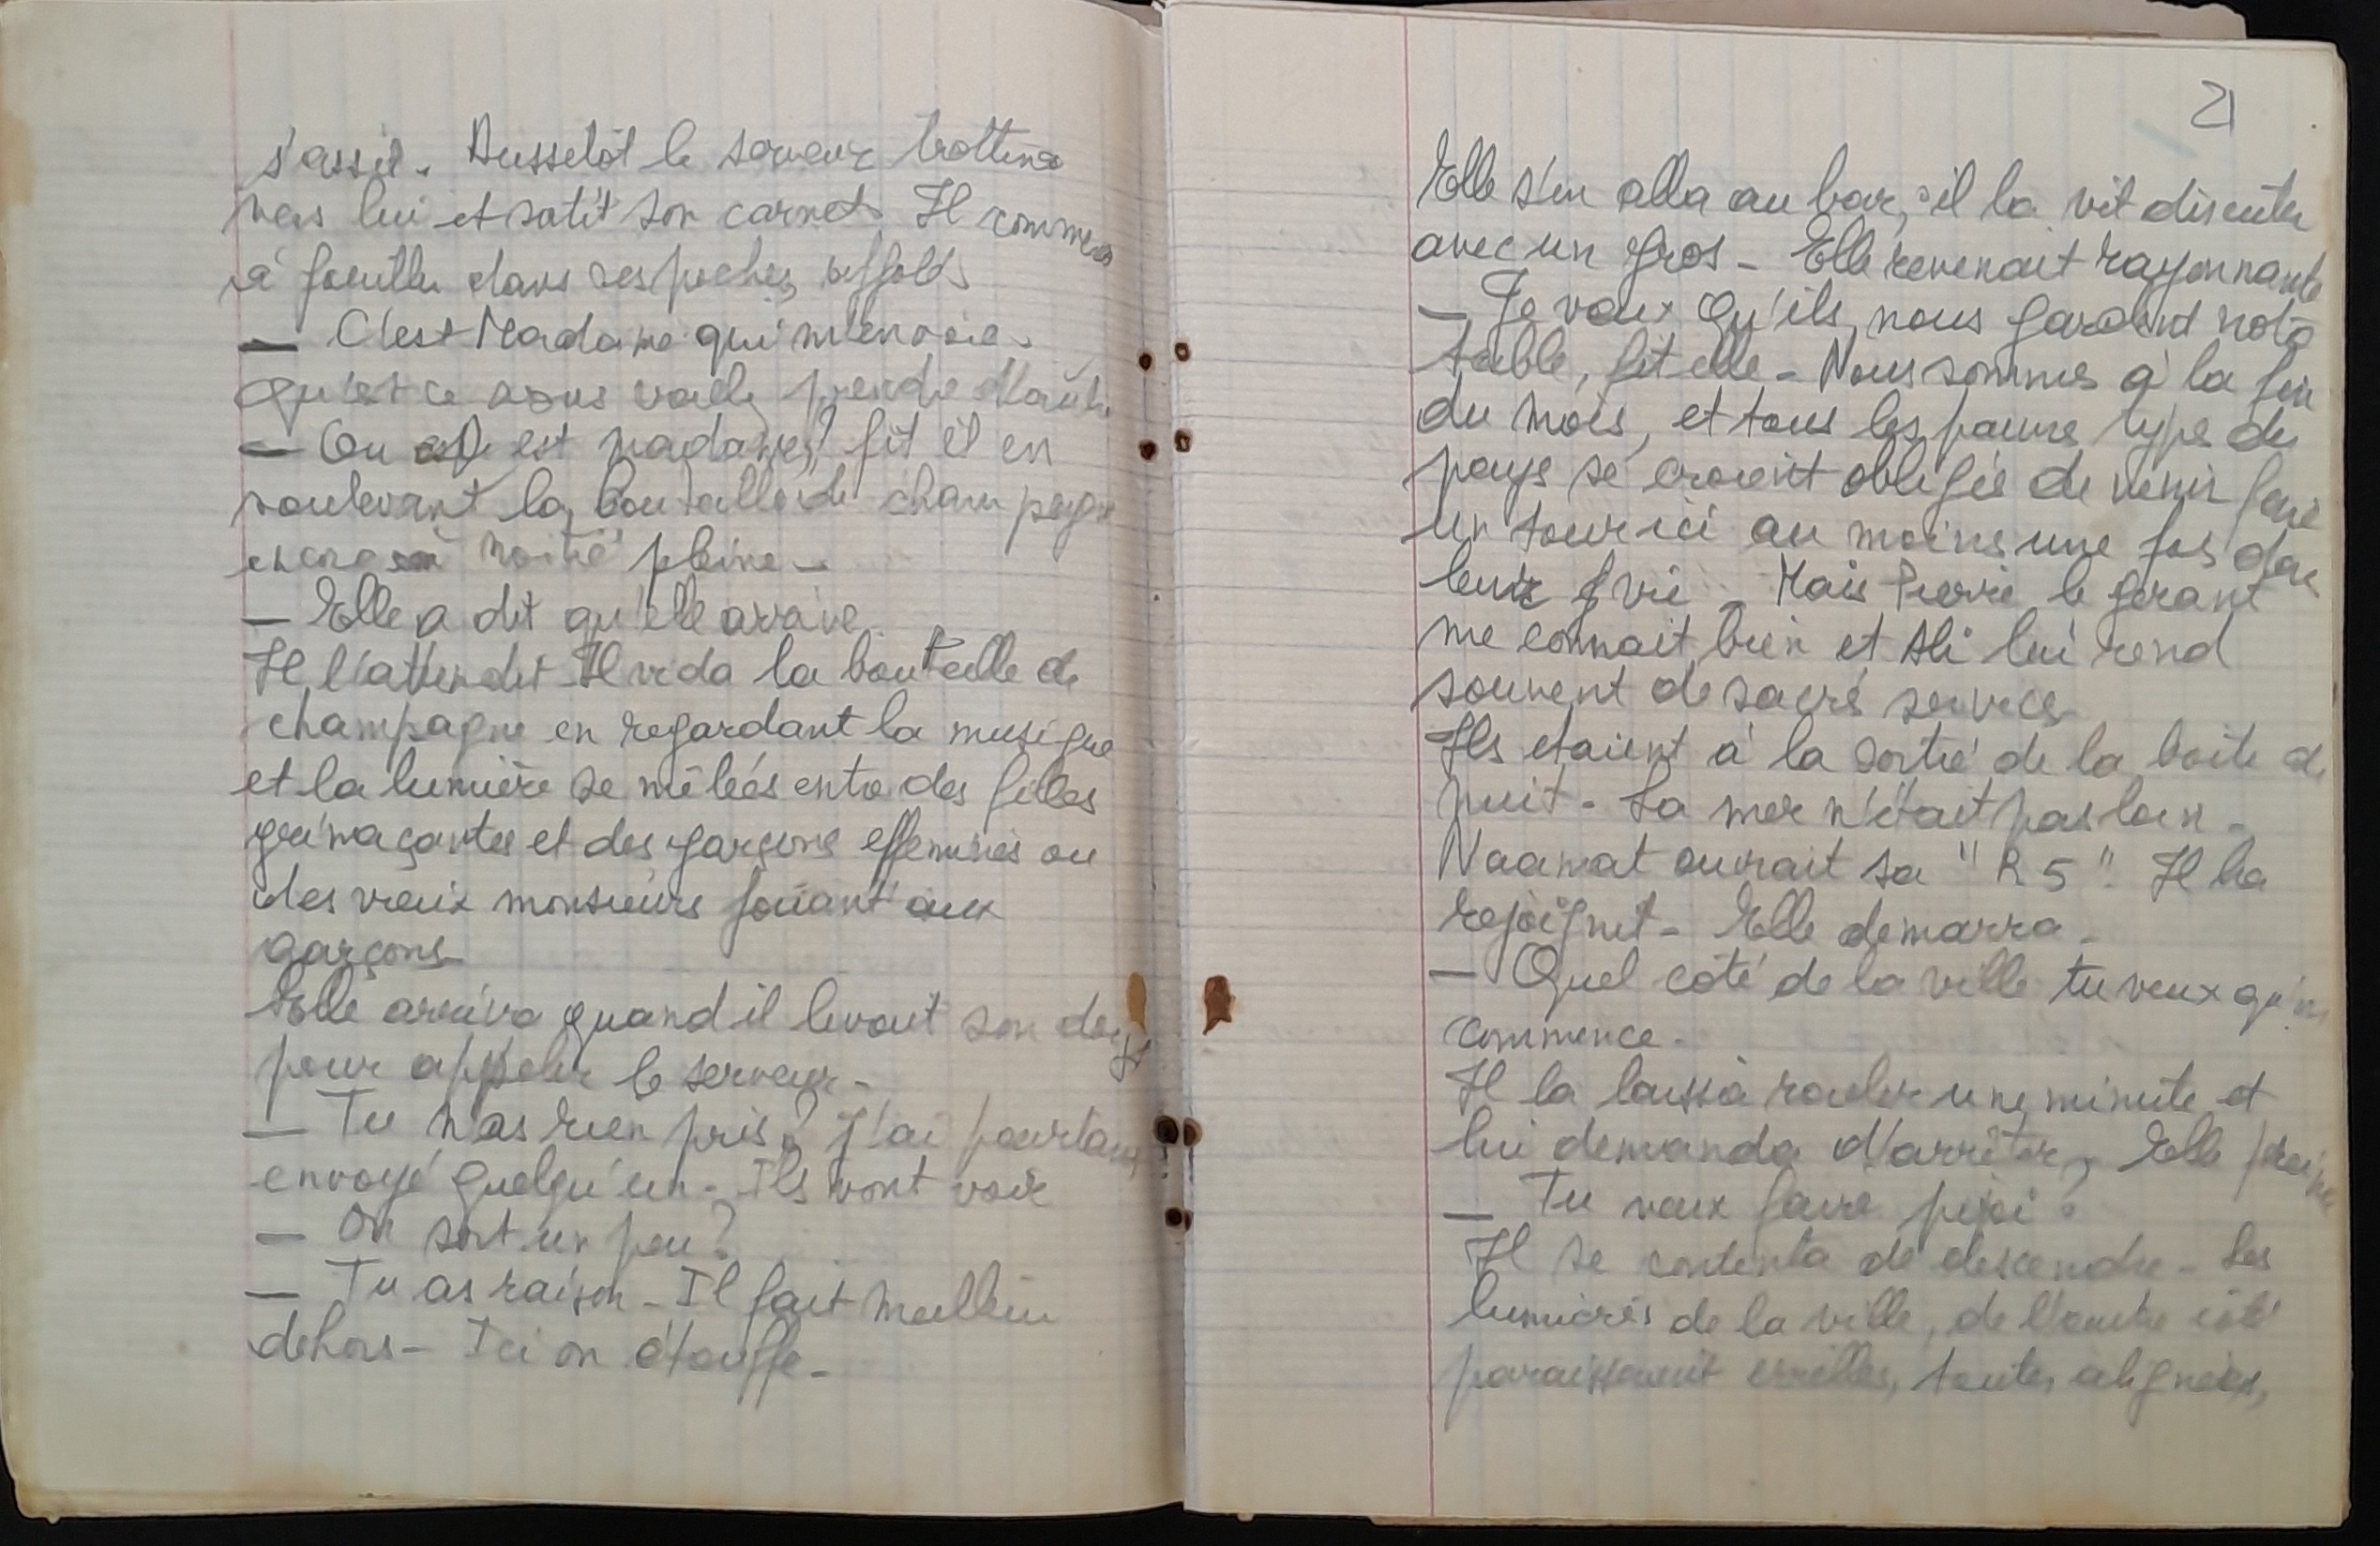 s'assit. Aussitôt le serveur trottina
vers lui et sortit son carnet. Il commença
à fouiller dans ses poches, affolé
— C'est Madame qui m'envoie.
Qu'est ce vous voulez prendre d'autre
— Ou est madame? fit il en
soulevant la bouteille de champagne
encore à moitié pleine.
— Elle a dit qu'elle arrive.
Il l'attendit. Il vida la bouteille de
champagne en regardant la musique
et la lumière se mêleés entre des filles
grimaçantes et des garçons efféminés ou
des vieux monsieurs jouant aux
garçons.
Elle arriva quand il levait son doigt
pour appeler le serveur.
— Tu n'as rien pris? J'ai pourtant
envoyé quelqu'un. Ils vont voir
— On sort un peu?
— Tu as raison. Il fait meilleur
dehors. Ici on étouffe.
21
Elle s'en alla au bar, il la vit discuter
avec un gros. Elle revenait rayonnante
— Je veux qu'ils nous gardent notre
table, fit elle. Nous sommes à la fin
du mois, et tous les pauvre type du
pays se croient obligés de venir faire
un tour ici au moins une fois dans
leur vie. Mais Pierre le gérant
me connait bien et Ali lui rend
souvent de sacré services
Ils etaient à la sortie de la boite de
nuit. La mer n'était pas loin.
Naamat ouvrait sa "R5". Il la
rejoignit. Elle demarra.
— Quel coté de la ville tu veux qu'on
commence.
Il la laissa rouler une minute et
lui demanda d'arrêter. Elle
— Tu veux faire pipi?
Il se contenta de descendre. Les
lumières de la ville, de l'autre coté
paraissaient, toutes alignées,